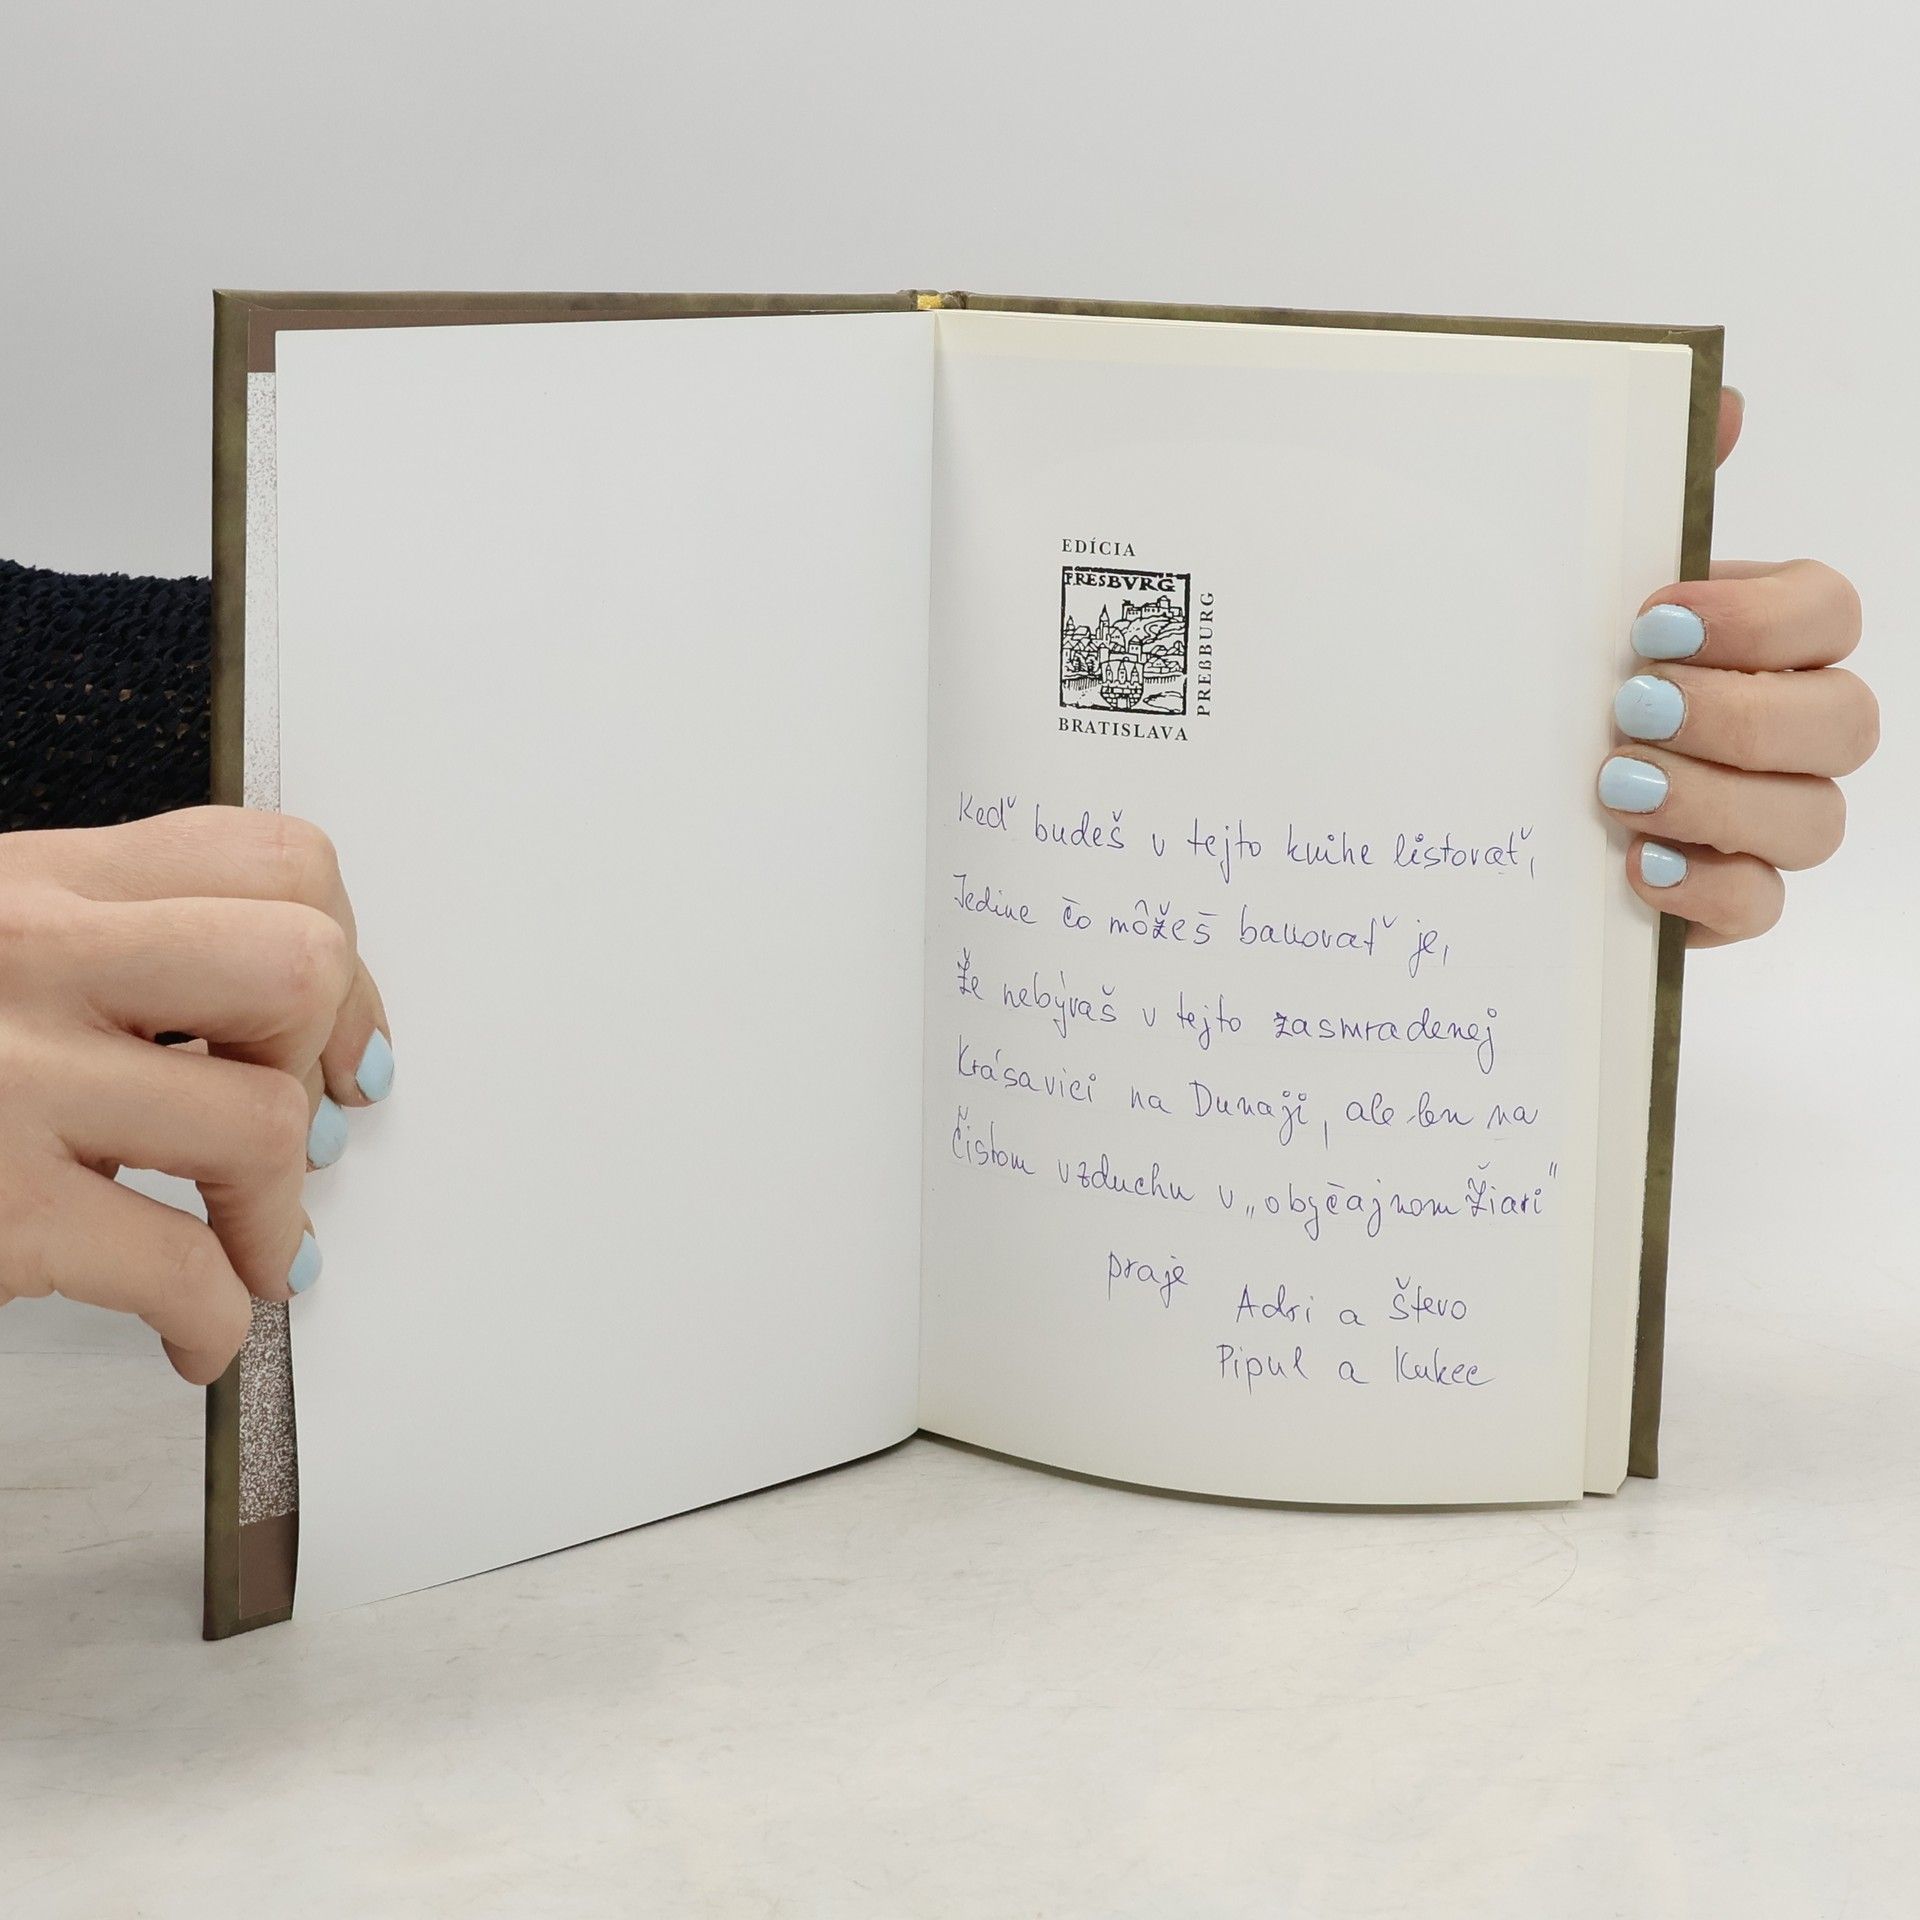 EDÍCIA
PRESBVRG
PREßBURG
BRATISLAVA
Keď budeš v tejto knihe listovať,
Jedine čo môžeš banovať je,
že nebývaš v tejto zasmradenej
Krásavici na Dunaji, ale len na
čistom vzduchu v „obyčajnom Žiari"
praje
Adri a Števo
Pipul a Kukec